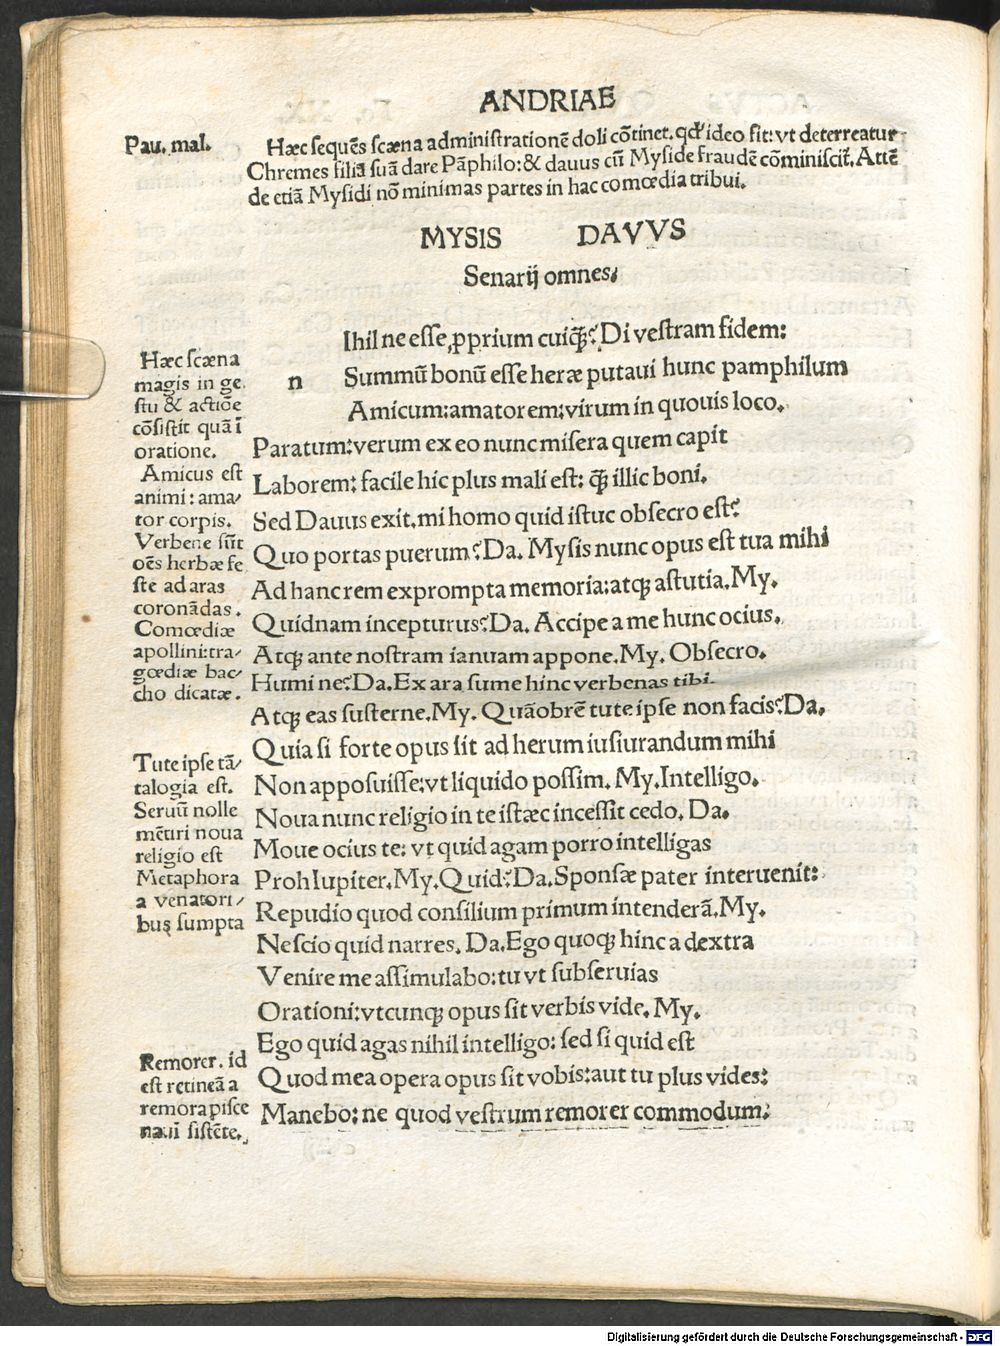 ANDRIAE
Pau. mal.
Hæc sequēs scæna administrationē doli cōtinet. qđ ideo fit: vt deterreatur
Chremes filiā suā dare Pāphilo: & dauus cū Myside fraudē cōminiscit̄. Attē
de etiā Mysidi nō minimas partes in hac comœdia tribui.
MYSIS DAVVS
Senarij omnes;
Ihil ne esse ꝓprium cuiqꝫ? Di vestram fidem:
n Summū bonū esse heræ putaui hunc pamphilum
Amicum: amatorem: virum in quouis loco.
Paratum: verum ex eo nunc misera quem capit
Laborem: facile hic plus mali est: q̄ꝫ illic boni.
Sed Dauus exit. mi homo quid istuc obsecro est?
Quo portas puerum? Da. Mysis nunc opus est tua mihi
Ad hanc rem exprompta memoria: atqꝫ astutia. My.
Quidnam incepturus? Da. Accipe a me hunc ocius.
Atqꝫ ante nostram ianuam appone. My. Obsecro.
Humi ne? Da. Ex ara sume hinc verbenas tibi.
Atqꝫ eas susterne. My. Quāobrē tute ipse non facis? Da.
Quia si forte opus sit ad herum iusiurandum mihi
Non apposuisse: vt liquido possim. My. Intelligo.
Noua nunc religio in te istæc incessit cedo. Da.
Moue ocius te: vt quid agam porro intelligas
Proh Iupiter. My. Quid? Da. Sponsæ pater interuenit:
Repudio quod consilium primum intenderā. My.
Nescio quid narres. Da. Ego quoqꝫ hinc a dextra
Venire me assimulabo: tu vt subseruias
Orationi: vtcunqꝫ opus sit verbis vide. My.
Ego quid agas nihil intelligo: sed si quid est
Quod mea opera opus sit vobis: aut tu plus vides:
Manebo: ne quod vestrum remorer commodum:
Hæc scæna
magis in ge
stu & actiōe
cōsistit quā ī
oratione.
Amicus est
animi: ama/
tor corpis.
Verbene sūt
oēs herbæ fe
ste ad aras
coronādas.
Comœdiæ
apollini: tra/
gœdiæ bac/
cho dicatæ.
Tute ipse tā/
talogia est.
Seruū nolle
mētiri noua
religio est
Metaphora
a venatori/
bus sumpta
Remorer. id
est retineā a
remora pisce
nauī sistēte.
Digitalisierung gefördert durch die Deutsche Forschungsgemeinschaft - DFG